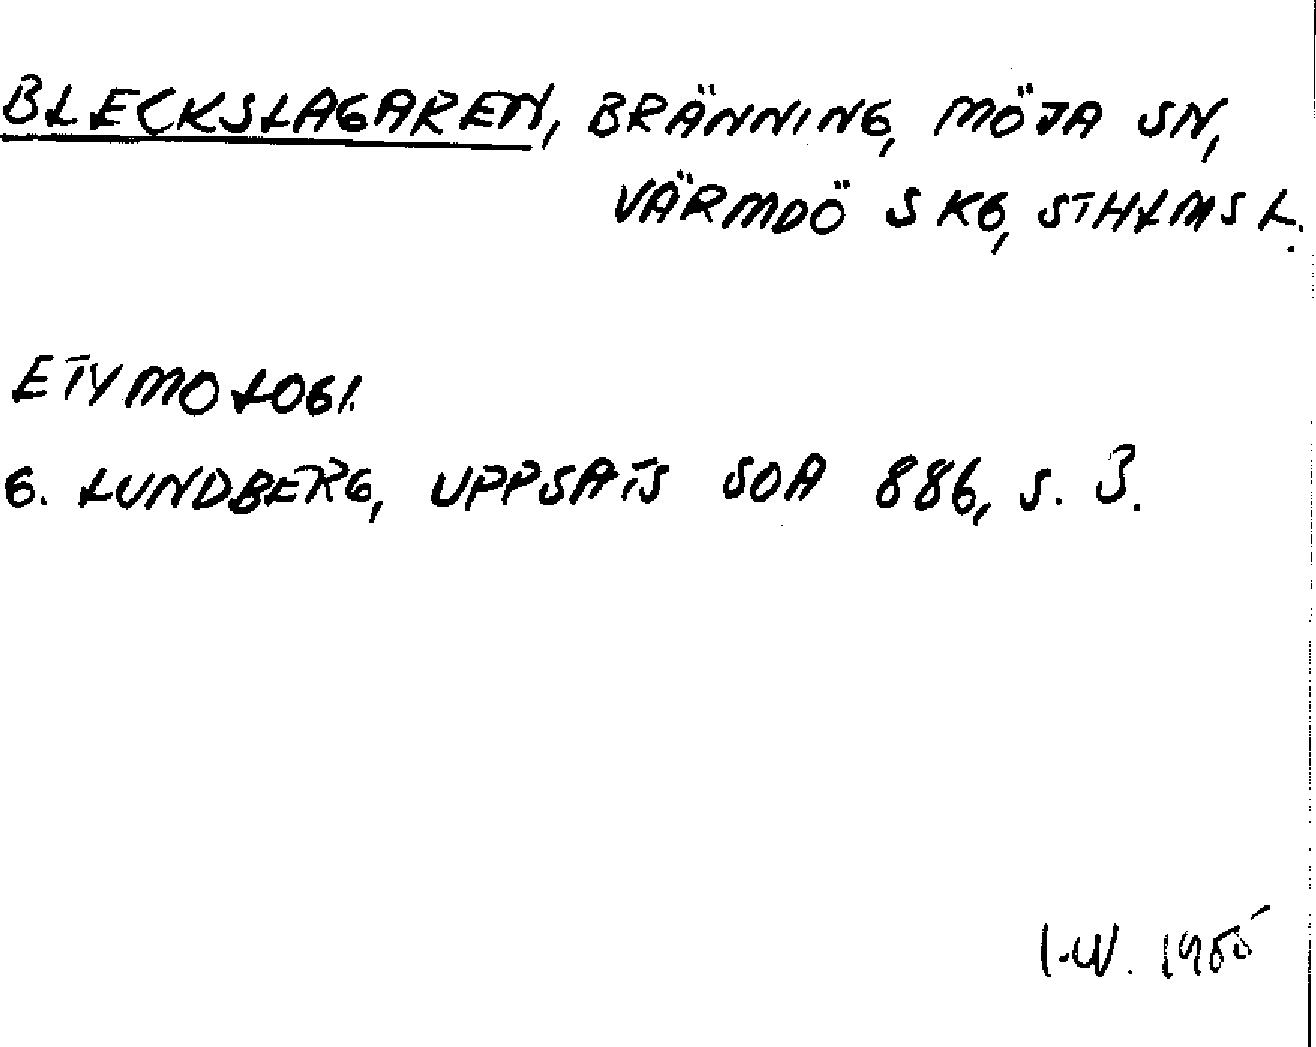 BLECKSLAGAREN, BRÄNNING, MÖJA SN,
VÄRMDÖ SKG, STHLMS L.
ETYMOLOGI.
G. LUNDBERG, UPPSATS SOA 886, S. 3.
I.W.